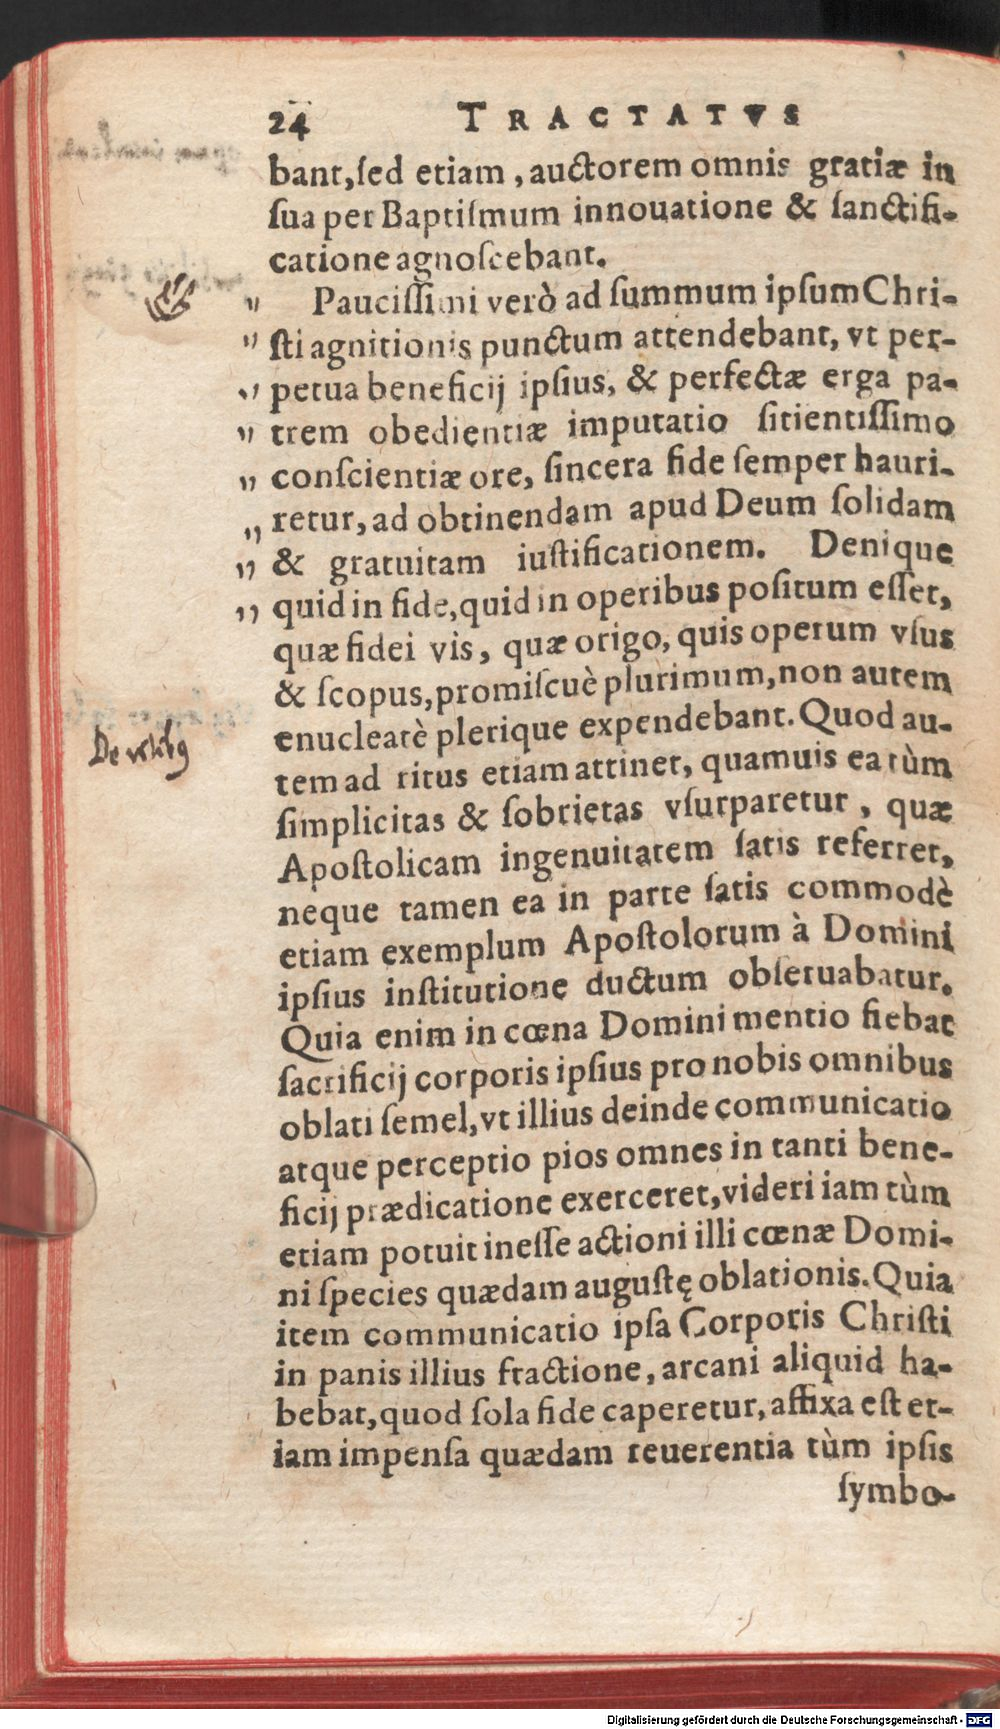 24 TRACTATVS
bant, ſed etiam, auctorem omnis gratiæ in
ſua per Baptiſmum innouatione & ſanctifi-
catione agnoſcebant.
" Pauciſſimi verò ad ſummum ipſum Chri-
" ſti agnitionis punctum attendebant, vt per-
" petua beneficij ipſius, & perfectæ erga pa-
" trem obedientiæ imputatio ſitientiſſimo
" conſcientiæ ore, ſincera fide ſemper hauri-
" retur, ad obtinendam apud Deum ſolidam
" & gratuitam iuſtificationem. Denique
" quid in fide, quid in operibus poſitum eſſet,
quæ fidei vis, quæ origo, quis operum vſus
& ſcopus, promiſcuè plurimum, non autem
enucleatè plerique expendebant. Quod au-
De
tem ad ritus etiam attinet, quamuis ea tùm
ſimplicitas & ſobrietas vſurparetur, quæ
Apoſtolicam ingenuitatem ſatis referret,
neque tamen ea in parte ſatis commodè
etiam exemplum Apoſtolorum à Domini
ipſius inſtitutione ductum obſeruabatur.
Quia enim in cœna Domini mentio fiebat
ſacrificij corporis ipſius pro nobis omnibus
oblati ſemel, vt illius deinde communicatio
atque perceptio pios omnes in tanti bene-
ficij prædicatione exerceret, videri iam tùm
etiam potuit ineſſe actioni illi cœnæ Domi-
ni ſpecies quædam auguſtę oblationis. Quia
item communicatio ipſa Corporis Chriſti
in panis illius fractione, arcani aliquid ha-
bebat, quod ſola fide caperetur, affixa eſt et-
iam impenſa quædam reuerentia tùm ipſis
ſymbo-
Digitalisierung gefördert durch die Deutsche Forschungsgemeinschaft - DFG